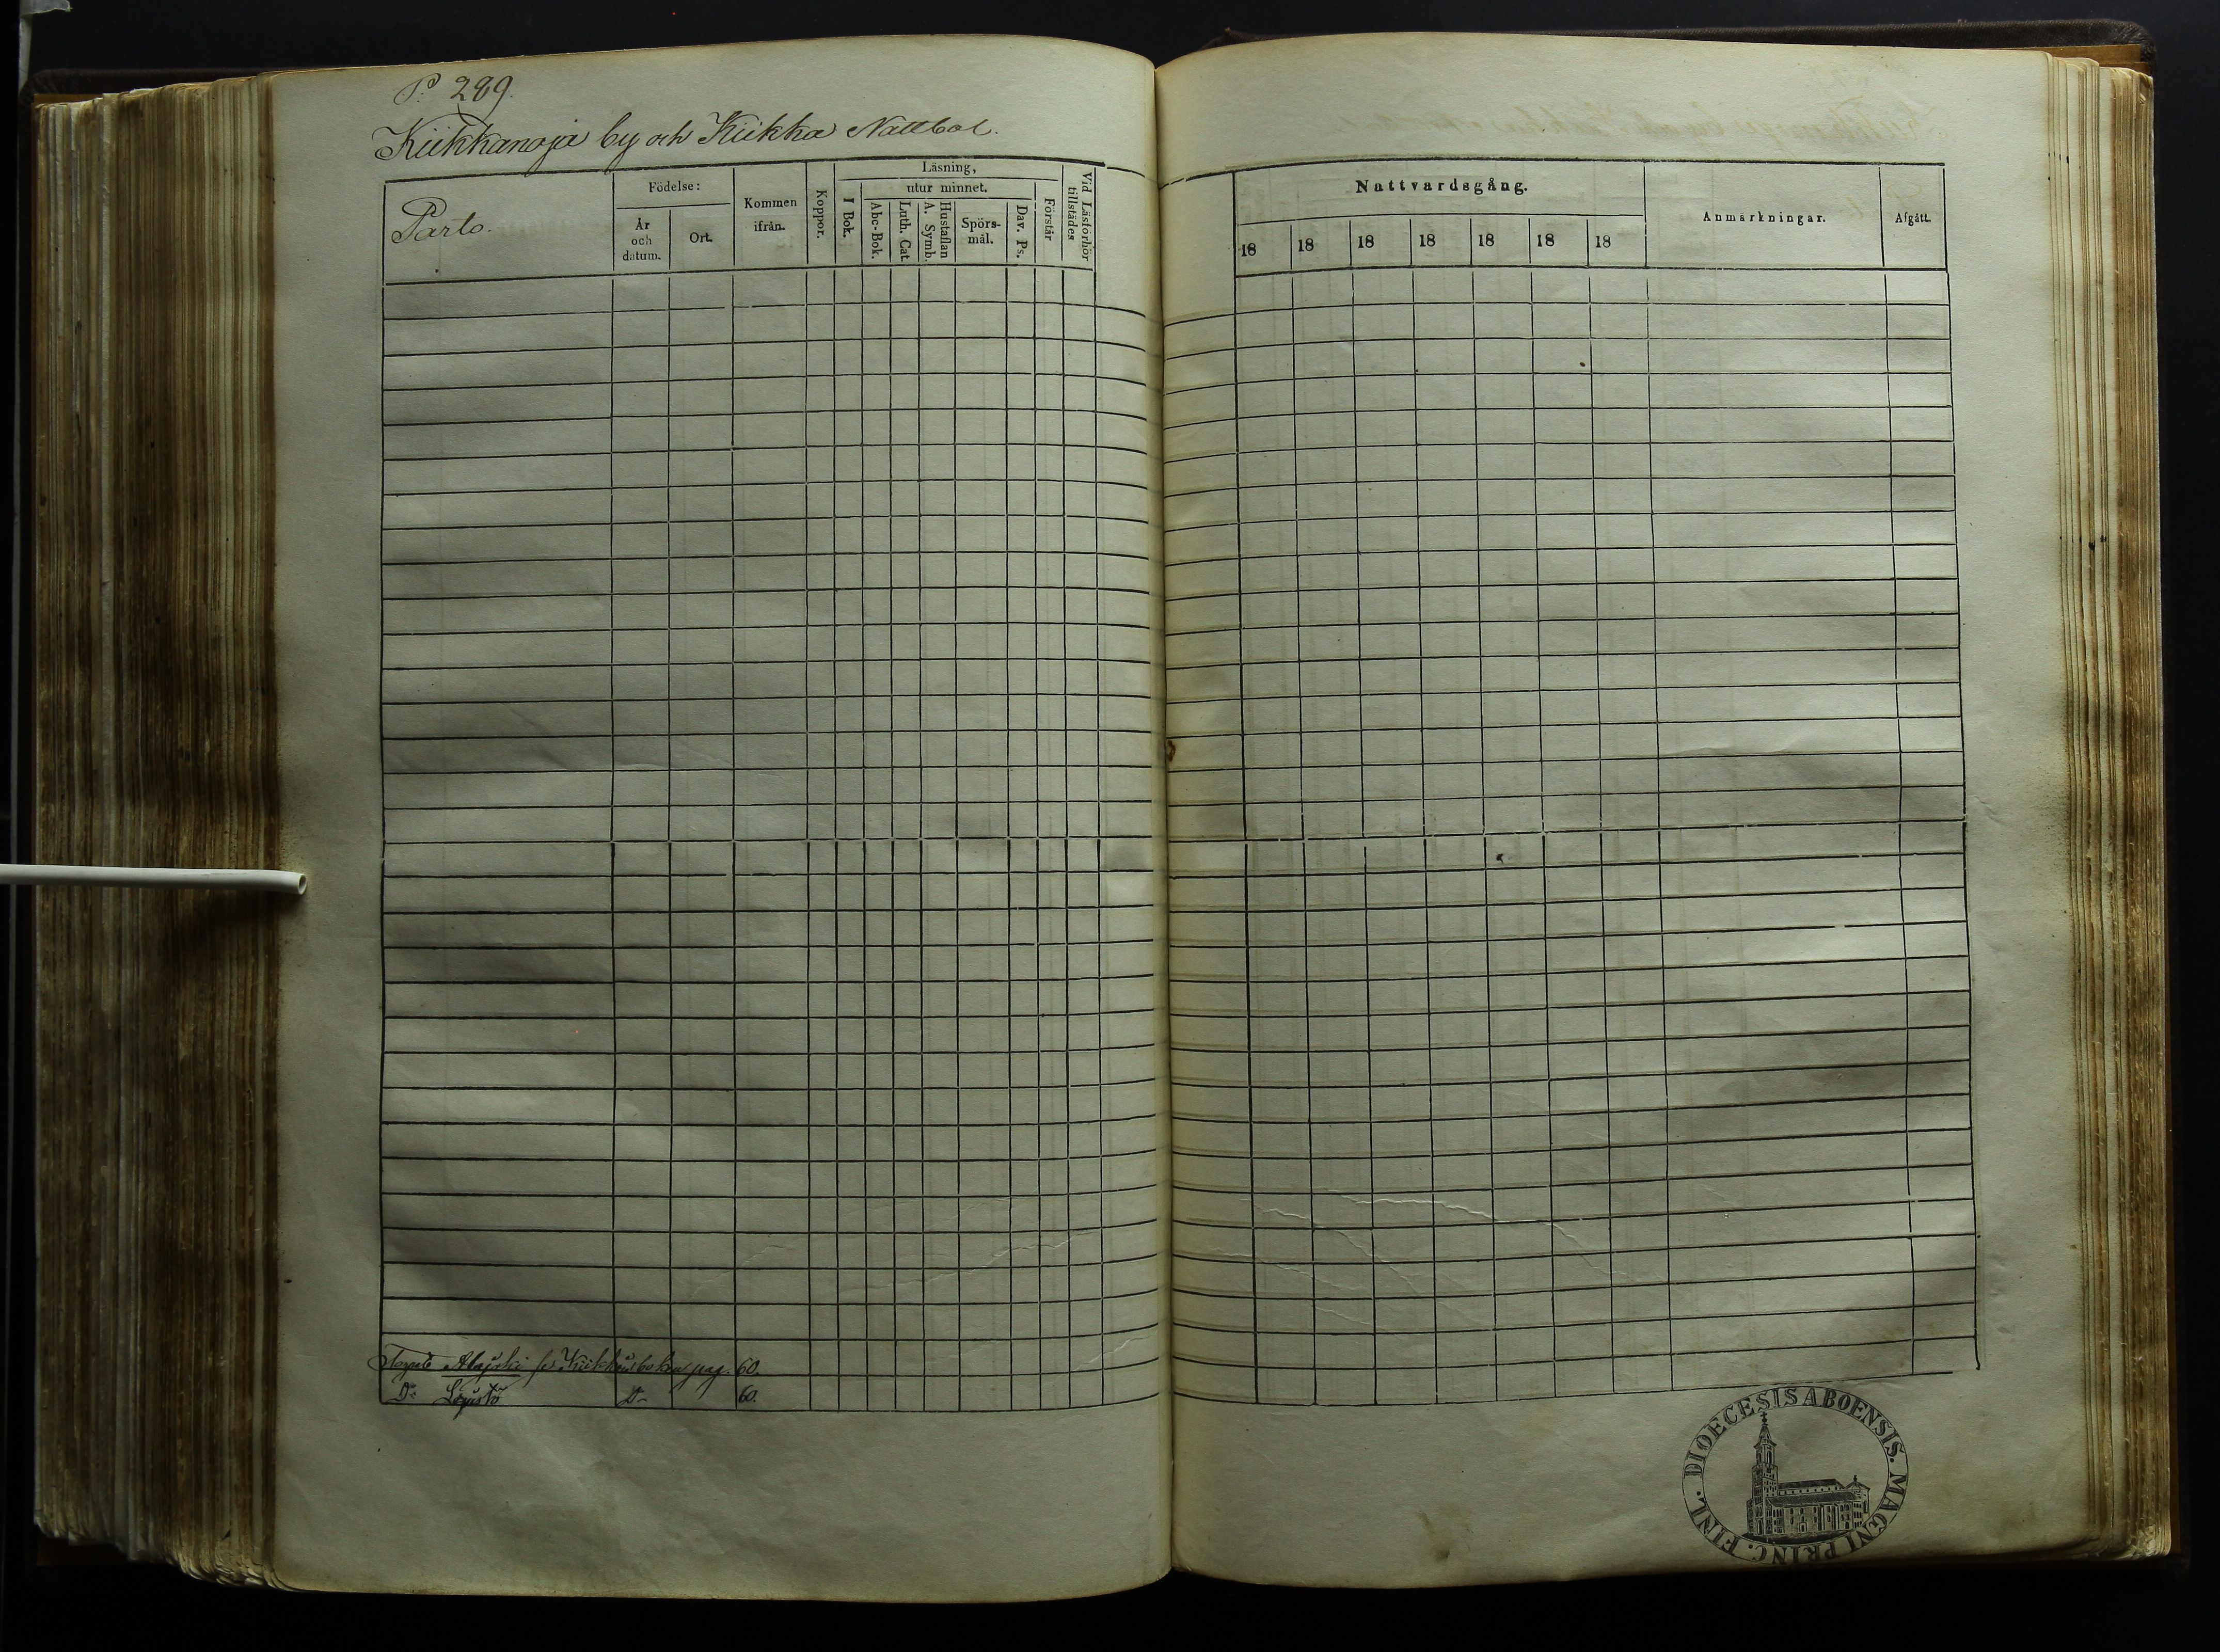 P. 289.
Kiikkanoja by och Kiikka Nattbol.
Parto.
Födelse:
År
och
datum.
Ort.
Kommen
ifrån.
Koppor.
Läsning,
I Bok.
utur minnet.
Abc-Bok.
Luth. Cat.
Hustaflan
A. Symb.
Spörs-
mål.
Dav. Ps.
Förstår
Vid Läsförhör
tillstädes
Nattvardsgång.
18 18 18 18 18 18 18
Anmärkningar.
Afgått.
Torpet pag. 60.
Do Do 60.
DIOECESIS ABOENSIS. MAGNI PRINC. FINL.